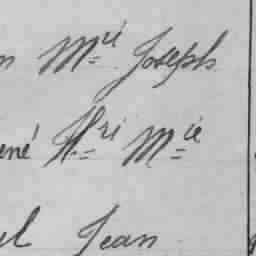 n Mié Joseph
ené Hri Mie
el Jean